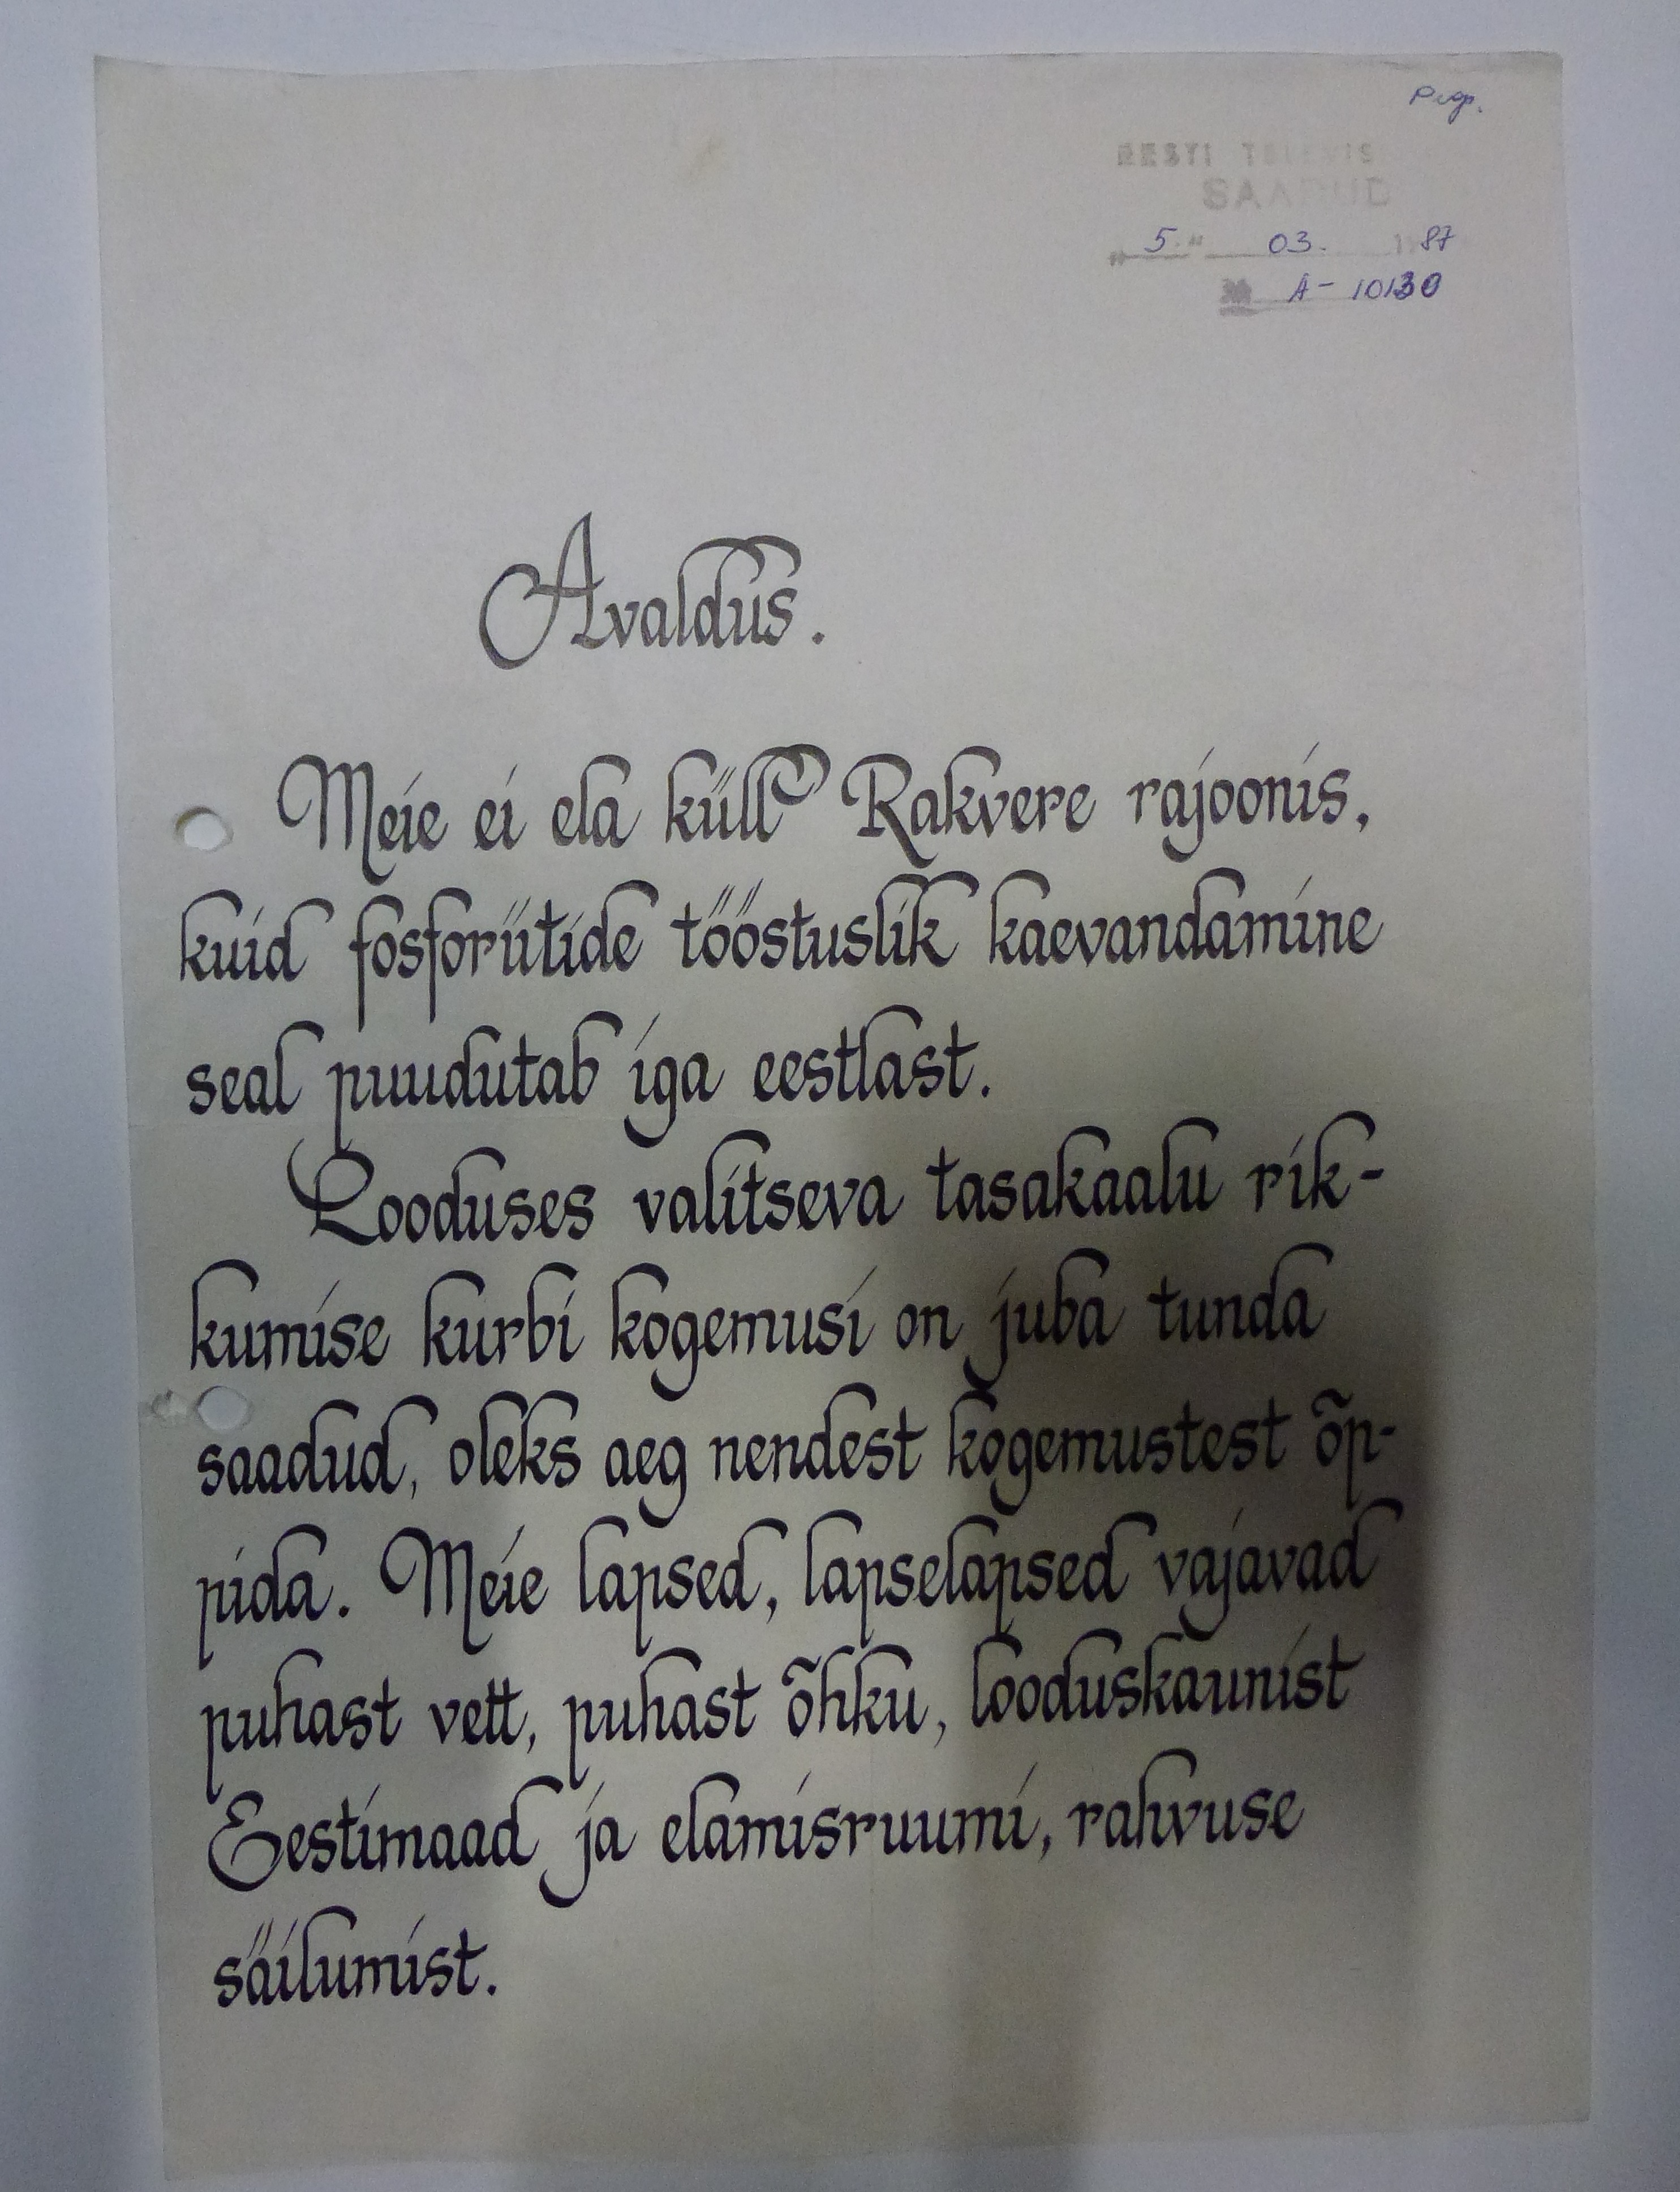 EESTI
SAADUD
"5." 03. 1987
A-10130
Avaldus.
Meie ei ela küll Rakvere rajoonis,
kuid fosforiitide tööstuslik kaevandamine
seal puudutab iga eestlast.
Looduses valitseva tasakaalu rik-
kumise kurbi kogemusi on juba tunda
saadud, oleks aeg nendest kogemustest õp-
pida. Meie lapsed, lapselapsed vajavad
puhast vett, puhast õhku, looduskaunist
Eestimaad ja elamisruumi, rahvuse
säilumist.